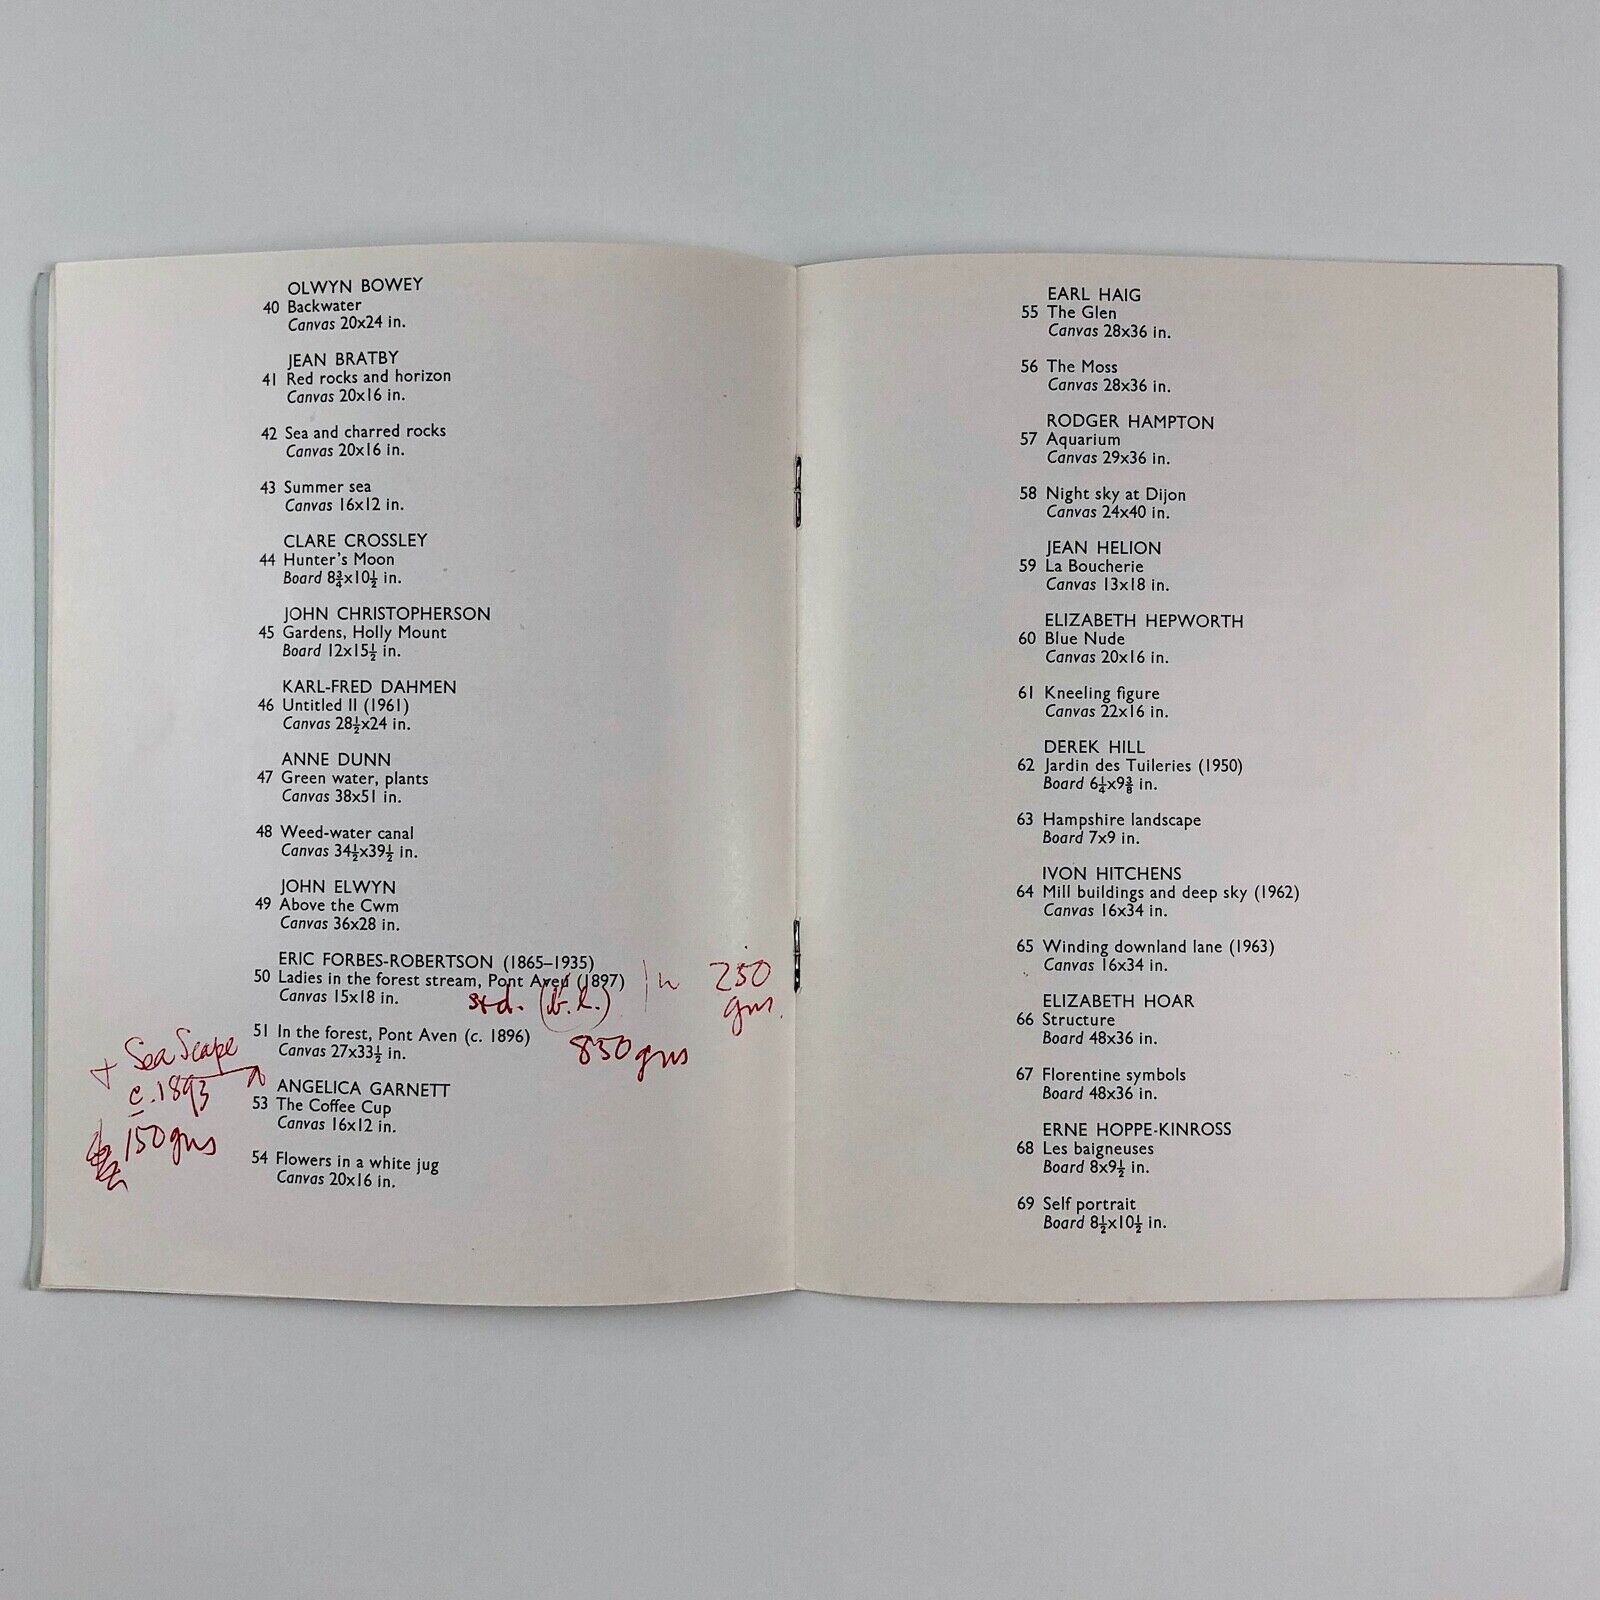 OLWYN BOWEY
40 Backwater
Canvas 20x24 in.
JEAN BRATBY
41 Red rocks and horizon
Canvas 20x16 in.
42 Sea and charred rocks
Canvas 20x16 in.
43 Summer sea
Canvas 16x12 in.
CLARE CROSSLEY
44 Hunter's Moon
Board 8¾x10½ in.
JOHN CHRISTOPHERSON
45 Gardens, Holly Mount
Board 12x15½ in.
KARL-FRED DAHMEN
46 Untitled II (1961)
Canvas 28½x24 in.
ANNE DUNN
47 Green water, plants
Canvas 38x51 in.
48 Weed-water canal
Canvas 34½x39½ in.
JOHN ELWYN
49 Above the Cwm
Canvas 36x28 in.
ERIC FORBES-ROBERTSON (1865–1935)
50 Ladies in the forest stream, Pont Aven (1897)
Canvas 15x18 in.
250
gns.
(b.l.)
51 In the forest, Pont Aven (c. 1896)
Canvas 27x33½ in.
850 gns
+ Sea Scape
c. 1893
150 gns
ANGELICA GARNETT
53 The Coffee Cup
Canvas 16x12 in.
54 Flowers in a white jug
Canvas 20x16 in.
EARL HAIG
55 The Glen
Canvas 28x36 in.
56 The Moss
Canvas 28x36 in.
RODGER HAMPTON
57 Aquarium
Canvas 29x36 in.
58 Night sky at Dijon
Canvas 24x40 in.
JEAN HELION
59 La Boucherie
Canvas 13x18 in.
ELIZABETH HEPWORTH
60 Blue Nude
Canvas 20x16 in.
61 Kneeling figure
Canvas 22x16 in.
DEREK HILL
62 Jardin des Tuileries (1950)
Board 6¼x9⅜ in.
63 Hampshire landscape
Board 7x9 in.
IVON HITCHENS
64 Mill buildings and deep sky (1962)
Canvas 16x34 in.
65 Winding downland lane (1963)
Canvas 16x34 in.
ELIZABETH HOAR
66 Structure
Board 48x36 in.
67 Florentine symbols
Board 48x36 in.
ERNE HOPPE-KINROSS
68 Les baigneuses
Board 8x9½ in.
69 Self portrait
Board 8½x10½ in.